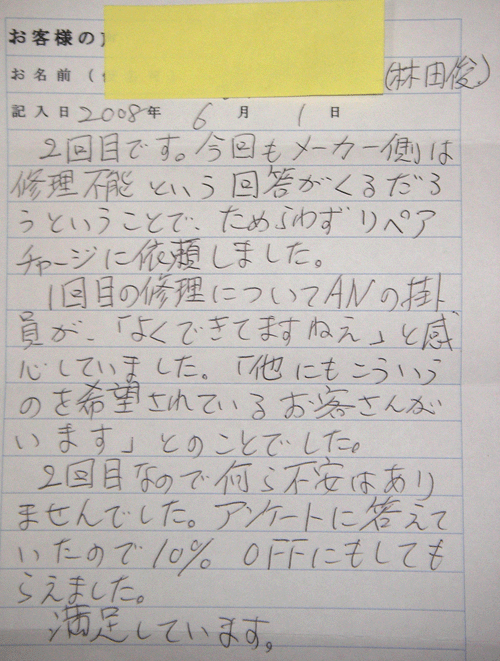 お客様の
お名前( (林田俊)
記入日2008年 6 月 1 日
2回目です。今回もメーカー側は
修理不能という回答がくるだろ
うということで、ためらわずリペア
チャージに依頼しました。
1回目の修理についてANの掛
員が、「よくできてますねえ」と感
心していました。「他にもこういう
のを希望されているお客さんが
います」とのことでした。
2回目なので何ら不安はあり
ませんでした。アンケートに答えて
いたので10% OFFにもしても
らえました。
満足しています。